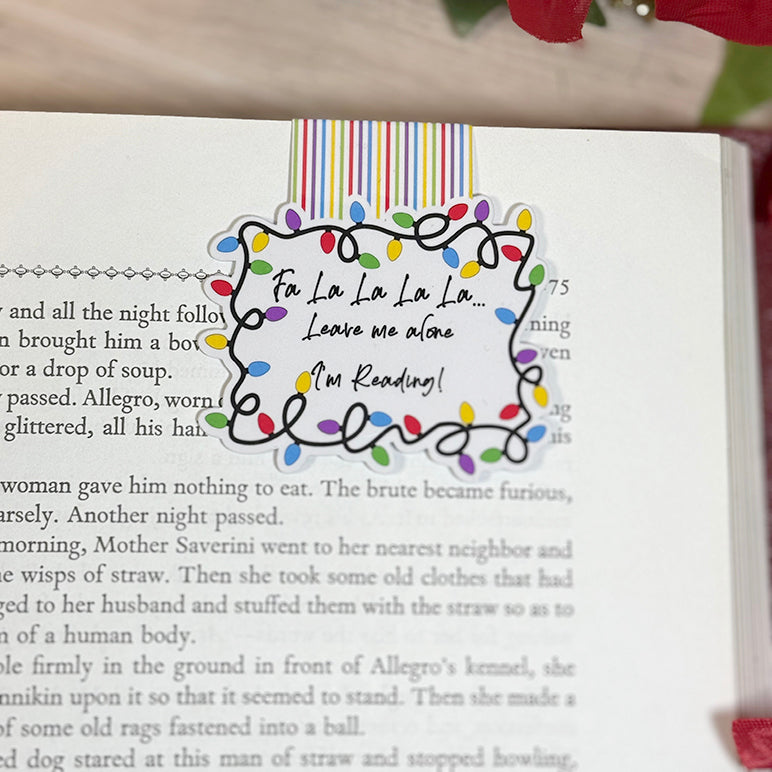 Fa La La La La...
Leave me alone
I'm Reading!
75
and all the night
ning
n brought him a
ven
or a drop of soup.
passed. Allegro, worn
glittered, all his
his
woman gave him nothing to eat. The brute became furious,
arsely. Another night passed.
morning, Mother Saverini went to her nearest neighbor and
e wisps of straw. Then she took some old clothes that had
ged to her husband and stuffed them with the straw so as to
n of a human body.
ole firmly in the ground in front of Allegro's kennel, she
nnikin upon it so that it seemed to stand. Then she made a
of some old rags fastened into a ball.
ed dog stared at this man of straw and stopped howling,